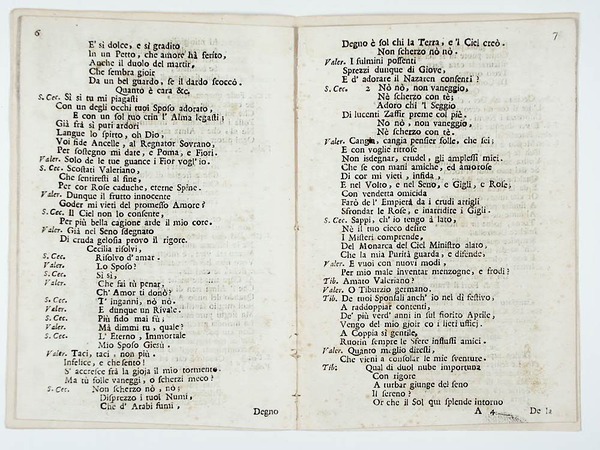 6
E' sì dolce, e sì gradito
In un Petto, che amore hà ferito,
Anche il duolo del martir,
Che sembra gioir
Da un bel guardo, se il dardo scoccò.
Quanto è cara &c.
S. Cec. Sì sì tu mi piagasti
Con un degl' occhi tuoi Sposo adorato,
E con un sol tuo crin l' Alma legasti;
Già frà sì puri ardori
Langue lo spirto, oh Dio,
Voi fide Ancelle, al Regnator Sovrano,
Per sostegno mi date, e Poma, e Fiori.
Valer. Solo de le tue guance i Fior vogl' io.
S. Cec. Scostati Valeriano,
Che sentiresti al fine,
Per cor Rose caduche, eterne Spine.
Valer. Dunque il frutto innocente
Goder mi vieti del promesso Amore?
S. Cec. Il Ciel non lo consente,
Per più bella cagione arde il mio core.
Valer. Già nel Seno sdegnato
Di cruda gelosia provo il rigore.
Cecilia risolvi,
S. Cec. Risolvo d' amar.
Valer. Lo Sposo?
S. Cec. Sì sì,
Valer. Che fai tù penar,
Ch' Amor ti donò?
S. Cec. T' inganni, nò nò.
Valer. E dunque un Rivale.
S. Cec. Più fido mai fù;
Valer. Mà dimmi tu, quale?
S. Cec. L' Eterno, Immortale
Mio Sposo Giesù.
Valer. Taci, taci, non più.
Infelice, e che sento!
S' accresce frà la gioja il mio tormento.
Ma tù folle vaneggi, o scherzi meco?
S. Cec. Non scherzo nò, nò;
Disprezzo i tuoi Numi,
Che d' Arabi fumi,
Degno
7
Degno è sol chi la Terra, e 'l Ciel creò.
Non scherzo nò nò.
Valer. I fulmini possenti
Sprezzi dunque di Giove,
E d' adorare il Nazaren consenti?
S. Cec. 2 Nò nò, non vaneggio,
Nè scherzo con tè;
Adoro chi 'l Seggio
Di lucenti Zaffir preme col piè.
Nò nò, non vaneggio,
Nè scherzo con tè.
Valer. Cangia, cangia pensier folle, che sei;
E con voglie ritrose
Non isdegnar, crudel, gli amplessi miei.
Che se con mani amiche, ed amorose
Di cor mi vieti, infida,
E nel Volto, e nel Seno, e Gigli, e Rose;
Con vendetta omicida
Farò de l' Empietà da i crudi artigli
Sfrondar le Rose, e inaridire i Gigli.
S. Cec. Sappi, ch' io tengo à lato,
Nè il tuo cieco desire
I Misteri comprende,
Del Monarca del Ciel Ministro alato,
Che la mia Purità guarda, e difende,
Valer. E vuoi con nuovi modi,
Per mio male inventar menzogne, e frodi?
Tib. Amato Valeriano?
Valer. O Tiburzio germano.
Tib. De tuoi Sponsali anch' io nel dì festivo,
A raddoppiar contenti,
De' più verd' anni in sul fiorito Aprile,
Vengo del mio gioir co i lieti uffici.
A Coppia sì gentile,
Ruotin sempre le Sfere influssi amici.
Valer. Quanto meglio diresti,
Che vieni a consolar le mie sventure.
Tib. Qual di duol nube importuna
Con rigore
A turbar giunge del seno
Il sereno?
Or che il Sol qui splende intorno
A 4
De la